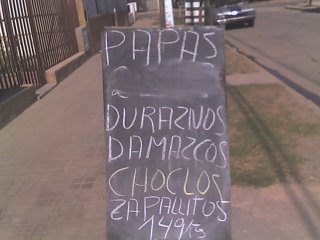 PAPAS
DURAZNOS
DAMAZCOS
CHOCLOS
ZAPALLITOS
1.49 Kg